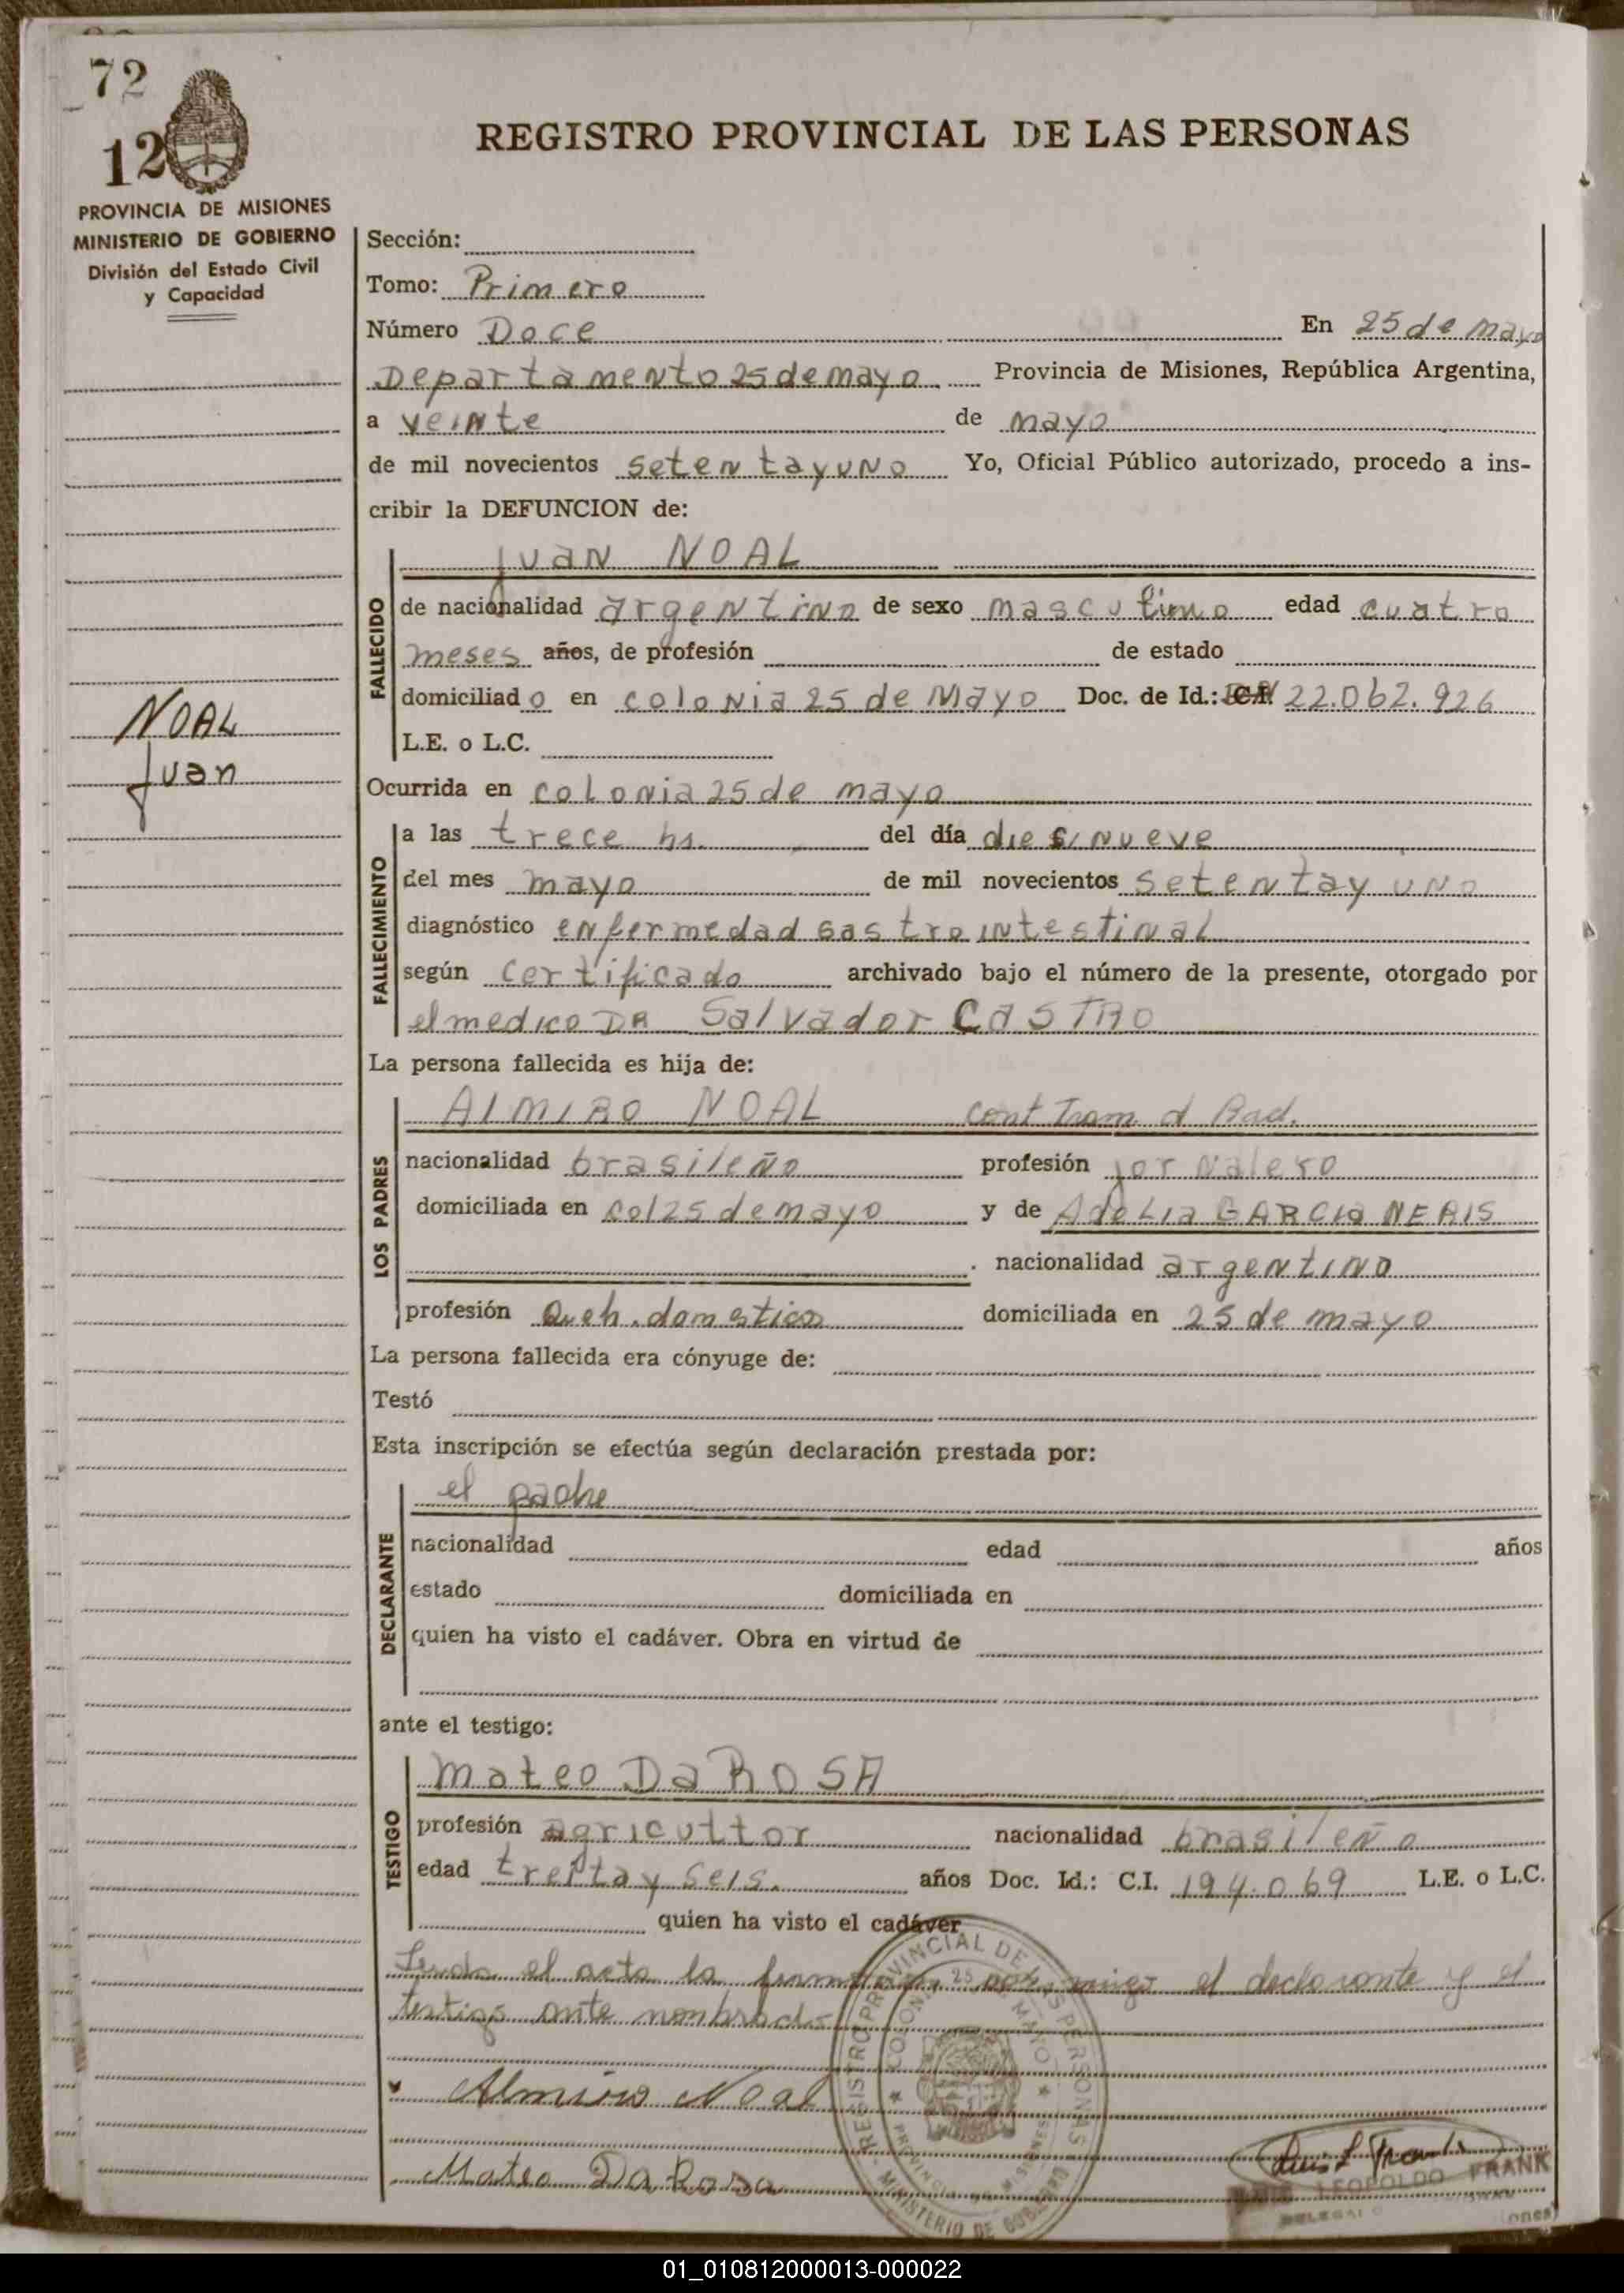 72
12
PROVINCIA DE MISIONES
MINISTERIO DE GOBIERNO
División del Estado Civil
y Capacidad
NOAL
Juan
REGISTRO PROVINCIAL DE LAS PERSONAS
Sección:
Tomo: Primero
Número Doce En 25 de mayo
Departamento 25 de mayo Provincia de Misiones, República Argentina,
a veinte de mayo
de mil novecientos setenta y uno Yo, Oficial Público autorizado, procedo a ins-
cribir la DEFUNCION de:
FALLECIDO
Juan NOAL
de nacionalidad argentino de sexo masculino edad cuatro
meses años, de profesión de estado
domiciliado en colonia 25 de Mayo Doc. de Id.: 22.062.926
L.E. o L.C.
Ocurrida en colonia 25 de mayo
FALLECIMIENTO
a las trece hs. del día diesinueve
del mes mayo de mil novecientos setenta y uno
diagnóstico enfermedad gastrointestinal
según certificado archivado bajo el número de la presente, otorgado por
el medico DR Salvador CASTRO
La persona fallecida es hija de:
LOS PADRES
AlMIRO NOAL cont Tram. d Rad.
nacionalidad brasileño profesión jornalero
domiciliada en col 25 de mayo y de AdeLia GARCIa NERIS
nacionalidad argentino
profesión Queh. domestico domiciliada en 25 de mayo
La persona fallecida era cónyuge de:
Testó
Esta inscripción se efectúa según declaración prestada por:
DECLARANTE
el padre
nacionalidad edad años
estado domiciliada en
quien ha visto el cadáver. Obra en virtud de
ante el testigo:
TESTIGO
Mateo Da ROSA
profesión agricultor nacionalidad brasileño
edad treitay seis. años Doc. Id.: C.I. 194.069 L.E. o L.C.
quien ha visto el cadáver
Leida el acta la firman conmigo el declarante y el
testigo ante nombrado
Almiro Noal
Mateo Da Rosa
REGISTRO PROVINCIAL DE LAS PERSONAS
COLONIA 25 DE MAYO
PROVINCIA DE MISIONES
MINISTERIO DE GOBIERNO
Luis L Frank
LUIS LEOPOLDO FRANK
01_010812000013-000022